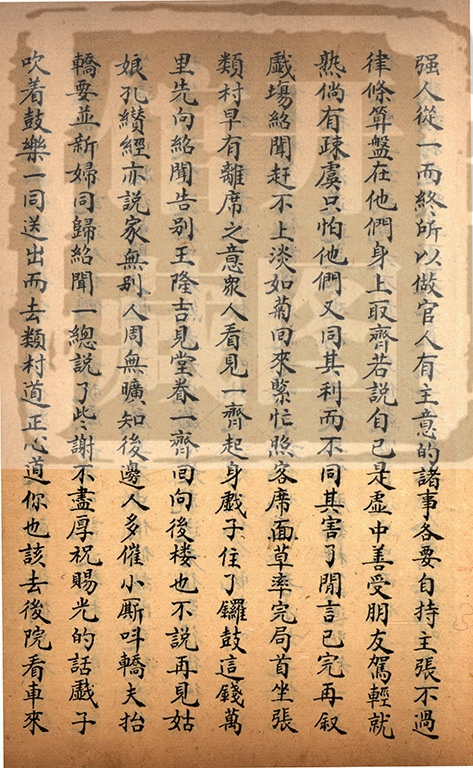 强人從一而終所以做官人有主意的諸事各要自持主張不過
律條算盤在他們身上取齊若說自己是虛中善受朋友駕輕就
熟倘有疎虞只怕他們又同其利而不同其害了閒言已完再叙
戲場紹聞赶不上淡如菊回來緊忙照客席面草率完局首坐張
類村早有離席之意衆人看見一齊起身戲子住了鑼鼓這錢萬
里先向紹聞告别王隆吉見堂眷一齊回向後楼也不說再見姑
娘孔纉經亦説家無别人周無曠知後邊人多催小厮呌轎夫抬
轎要並新婦同歸紹聞一總説了些謝不盡厚祝賜光的話戲子
吹着鼓樂一同送出而去類村道正心道你也該去後院看車來